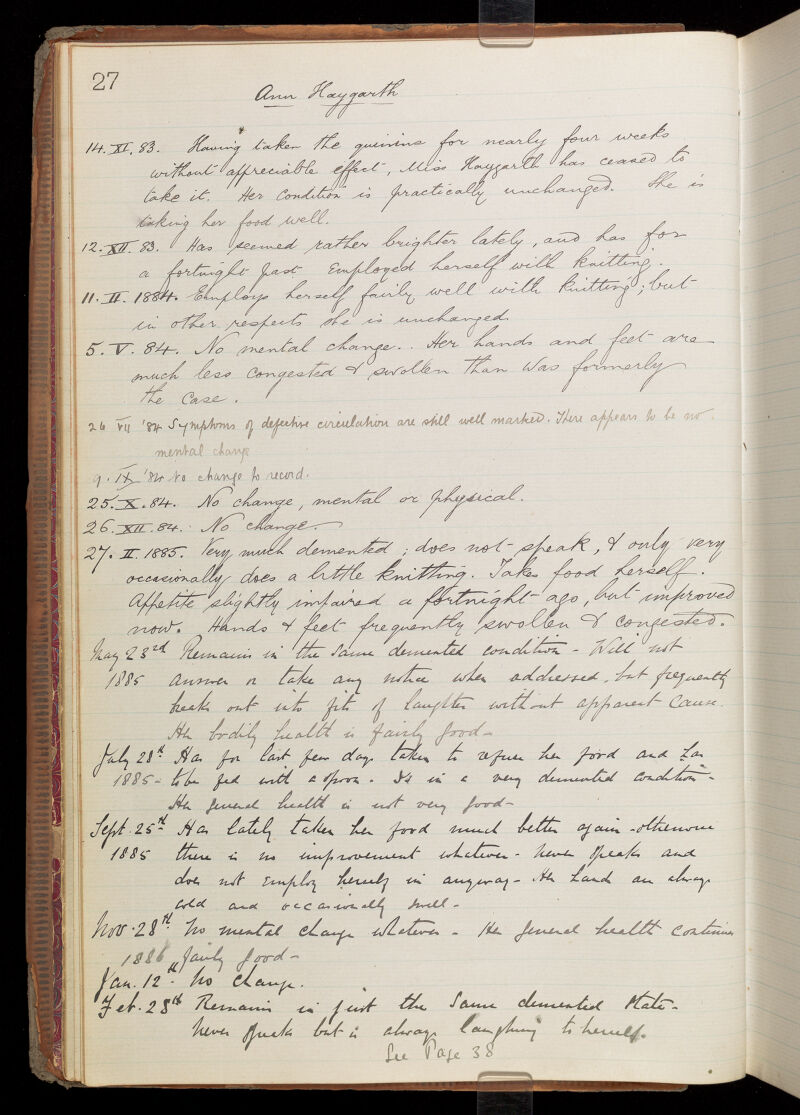 27
Ann Haygarth
14. XI. 83. Having taken the quinine for nearly four weeks
without appreciable effect, Miss Haygarth has ceased to
take it. Her condition is practically unchanged. She is
taking her food well.
12. XII. 83. Has seemed rather brighter lately, and has for
a fortnight past employed herself with knitting.
11. II. 1884. Employs herself fairly well with knitting; but
in other respects she is unchanged.
5. V. 84. No mental change. Her hands and feet are
much less congested & swollen than was formerly
the case.
26 VII '84 Symptoms of defective circulation are still well marked. There appears to be no
mental change
9. IX '84 No change to record.
25. X. 84. No change, mental or physical.
26. XII. 84. No change.
27. II. 1885. Very much demented; does not speak, & only very
occasionally does a little knitting. Takes food herself.
Appetite slightly impaired a fortnight ago, but improved
now. Hands & feet frequently swollen & congested.
May 23rd Remains in the same demented condition - Will not
1885 answer or take any notice when addressed, but frequently
breaks out into fits of laughter without apparent cause.
Her bodily health is fairly good -
July 28th Has for last few days taken to refuse her food and has
1885 - to be fed with a spoon. Is in a very demented condition -
Her general health is not very good -
Sept. 25th Has lately taken her food much better again - otherwise
1885 there is no improvement whatever - never speaks and
does not employ herself in anyway - Her hands are always
cold and occasionally swell -
Nov. 28th. No mental change whatever - Her general health continues
fairly good -
1886
Jan. 12th. No change.
Feb. 28th Remains in just the same demented state -
Never speaks but is always laughing to herself.
See Page 38